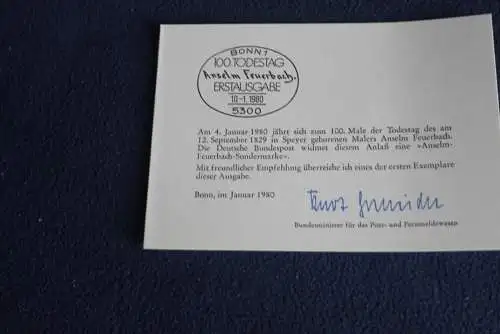 BONN 1
100. TODESTAG
Anselm Feuerbach.
ERSTAUSGABE
10-1.1980
5300
Am 4. Januar 1980 jährt sich zum 100. Male der Todestag des am
12. September 1829 in Speyer geborenen Malers Anselm Feuerbach.
Die Deutsche Bundespost widmet diesem Anlaß eine »Anselm-
Feuerbach-Sondermarke«.
Mit freundlicher Empfehlung überreiche ich eines der ersten Exemplare
dieser Ausgabe.
Bonn, im Januar 1980
Kurt
Bundesminister für das Post- und Fernmeldewesen